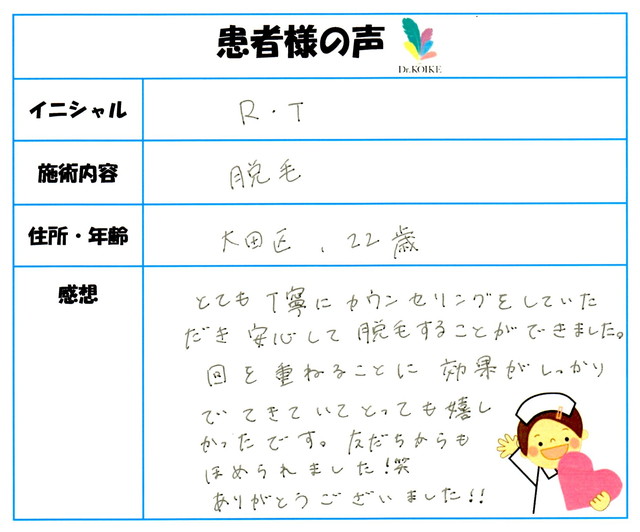 患者様の声
Dr.KOIKE
イニシャル
R・T
施術内容
脱毛
住所・年齢
大田区、22歳
感想
とても丁寧にカウンセリングをしていた
だき安心して脱毛することができました。
回を重ねることに効果がしっかり
でてきていてとっても嬉し
かったです。友だちからも
ほめられました!笑
ありがとうございました!!